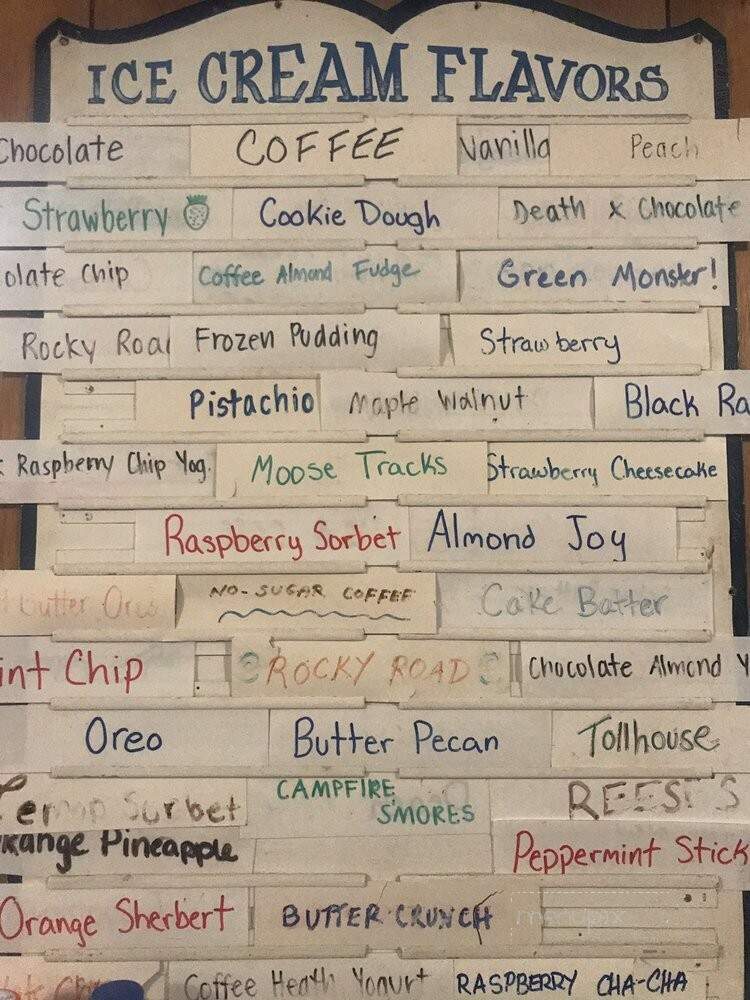 ICE CREAM FLAVORS
Chocolate COFFEE Vanilla Peach
Strawberry Cookie Dough Death x Chocolate
olate Chip Coffee Almond Fudge Green Monster!
Rocky Road Frozen Pudding Strawberry
Pistachio Maple Walnut Black Ra
Raspberry Chip Yog. Moose Tracks Strawberry Cheesecake
Raspberry Sorbet Almond Joy
Butter Oreo NO-SUGAR COFFEE Cake Batter
int Chip ROCKY ROAD Chocolate Almond Y
Oreo Butter Pecan Tollhouse
CAMPFIRE
Sorbet S'MORES REESE'S
range Pineapple Peppermint Stick
Orange Sherbert BUTTER CRUNCH
Coffee Heath Yogurt RASPBERRY CHA-CHA